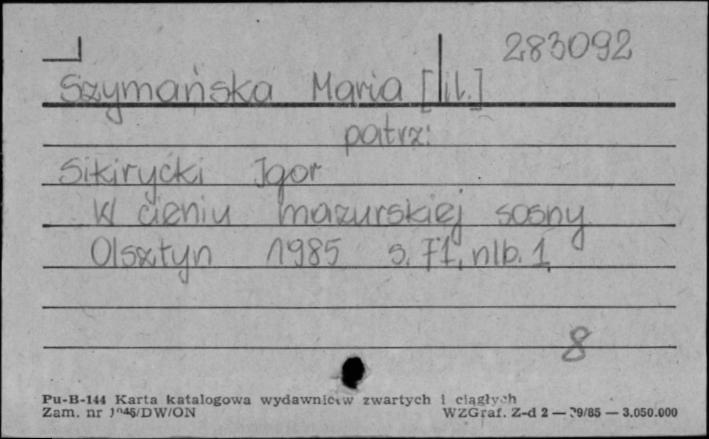 283092
Szymańska Maria [il.]
patrz:
Sikirycki Igor
W cieniu mazurskiej sosny
Olsztyn 1985 s. 71, nlb. 1
8
Pu-B-144 Karta katalogowa wydawnictw zwartych i ciągłych
Zam. nr /DW/ON WZGraf. Z-d 2 — /85 — 3.050.000